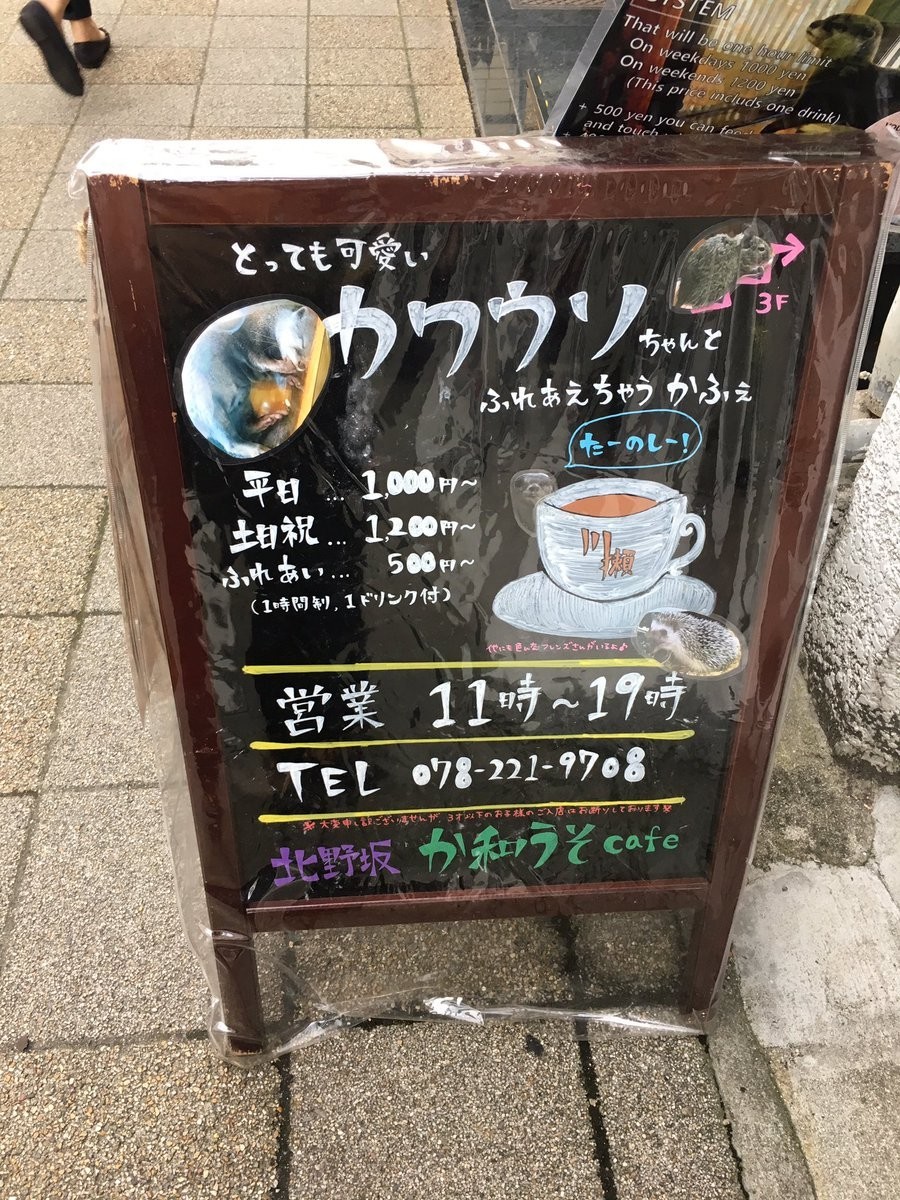 SYSTEM
That will be one hour limit
On weekdays 1000 yen
On weekends 1200 yen
(This price includs one drink)
+ 500 yen you can feed
and touch
とっても可愛い
カワウソ ちゃんと
3F
ふれあえちゃう かふぇ
たーのしー!
平日 ... 1,000円~
土日祝 ... 1,200円~
ふれあい ... 500円~
(1時間制, 1ドリンク付)
川獺
他にも色んなフレンズさんがいるよ♪
営業 11時~19時
TEL 078-221-9708
※大変申し訳ございませんが 3才以下のお子様のご入店はお断りしております※
北野坂 か和うそ cafe